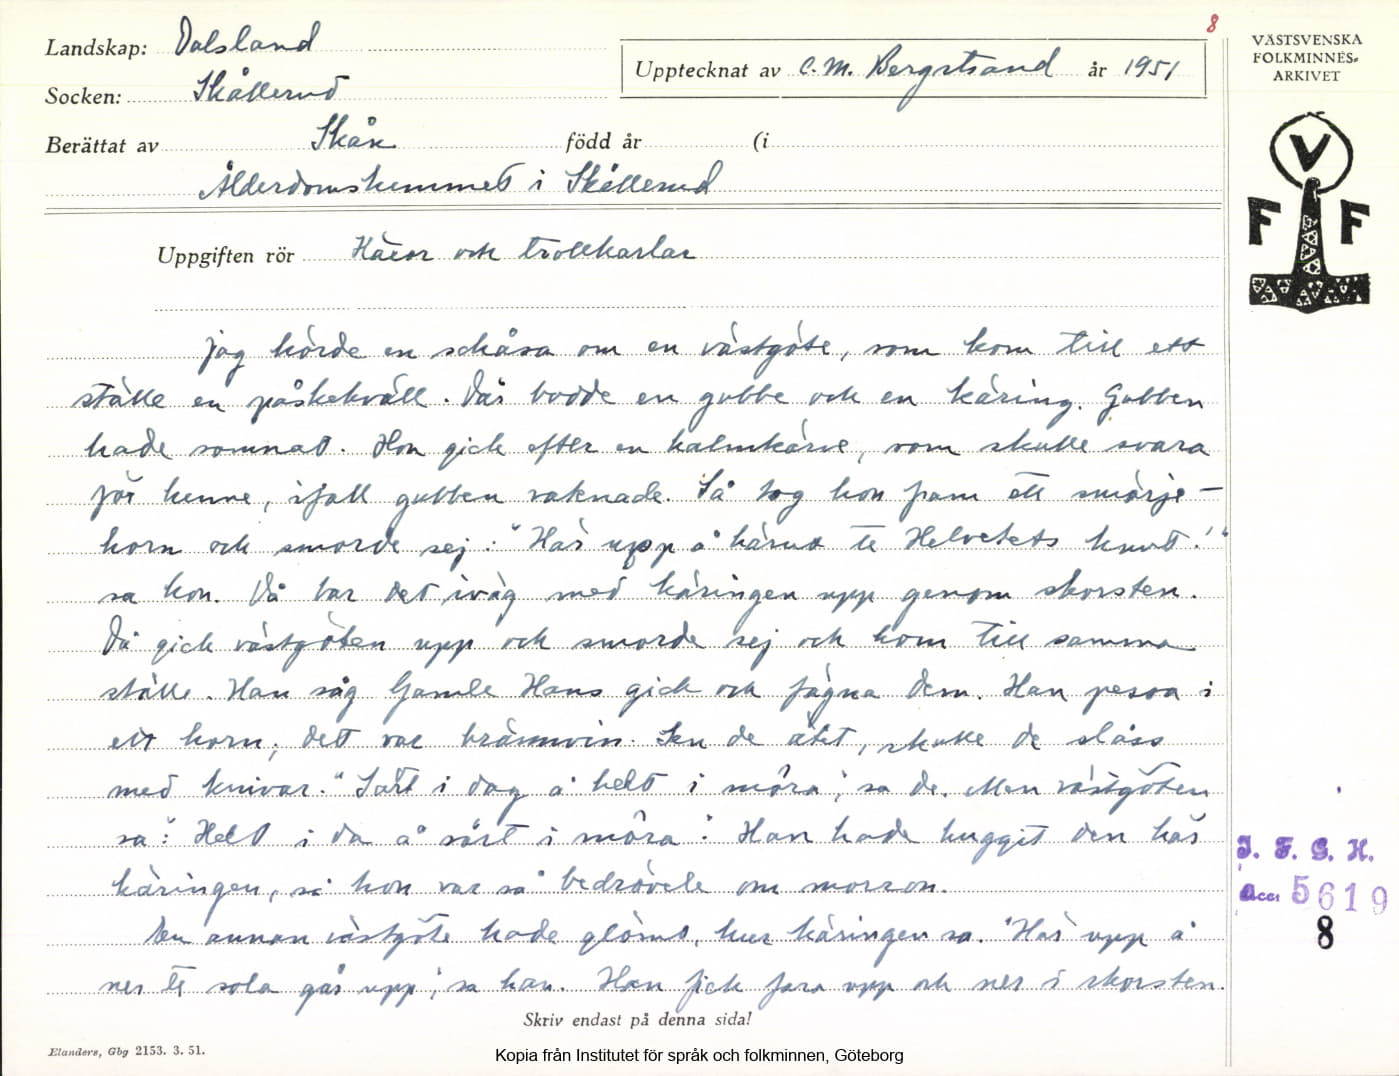 8
Landskap: Dalsland
Upptecknat av C. M. Bergstrand år 1951
Socken: Skållerud
Berättat av Skån född år (i
Ålderdomshemmet i Skållerud
Uppgiften rör Häxor och trollkarlar
VÄSTSVENSKA
FOLKMINNES-
ARKIVET
V
F F
Jag hörde en schåsa om en västgöte, som kom till ett
ställe en påskekväll. Där bodde en gubbe och en käring. Gubben
hade somnat. Hon gick efter en halmkärve, som skulle svara
för henne, ifall gubben vaknade. Så tog hon fram ett smörje-
horn och smorde sej: "Här upp å härut te Helvetets knut!"
sa hon. Då bar det iväg med käringen upp genom skorsten.
Då gick västgöten upp och smorde sej och kom till samma
ställe. Han såg Gamle Hans gick och fägna dem. Han pessa i
ett horn; det var brännvin. Sen de ätit, skulle de slåss
med knivar. "Sårt i dag å helt i môra", sa de. Men västgöten
sa: "Helt i da å sårt i môra". Han hade huggit den här
käringen, så hon var så bedrövele om morron.
En annan västgöte hade glömt, hur käringen sa. "Här upp å
ner te sola går upp", sa han. Han fick fara upp och ner i skorsten.
Skriv endast på denna sida!
Elanders, Gbg 2153. 3. 51.
I. F. G. H.
Acc: 5619
8
Kopia från Institutet för språk och folkminnen, Göteborg